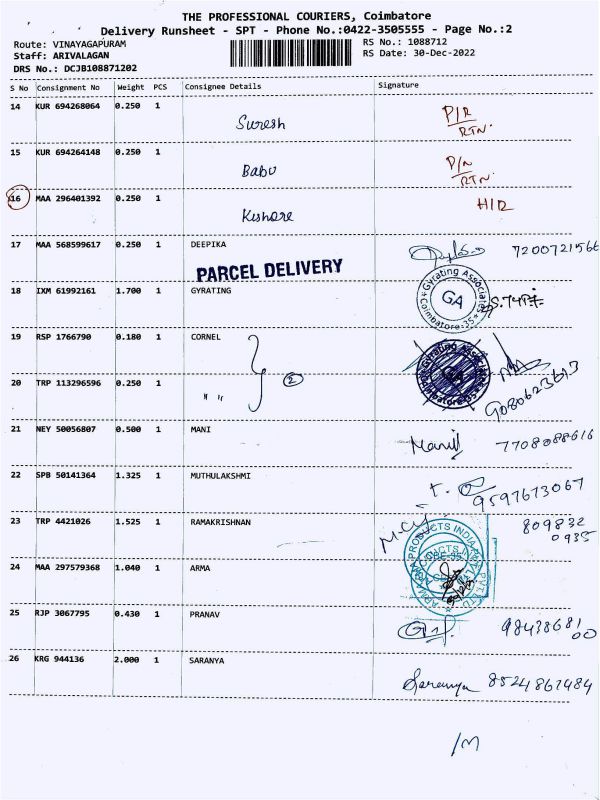 THE PROFESSIONAL COURIERS, Coimbatore
Delivery Runsheet - SPT - Phone No.:0422-3505555 - Page No.:2
Route: VINAYAGAPURAM
RS No.: 1088712
Staff: ARIVALAGAN
RS Date: 30-Dec-2022
DRS No.: DCJB108871202
S No Consignment No Weight PCS Consignee Details Signature
14 KUR 694268064 0.250 1 Suresh P/R RTN.
15 KUR 694264148 0.250 1 Babu P/N RTN.
16 MAA 296401392 0.250 1 Kishore
17 MAA 568599617 0.250 1 DEEPIKA 7200721566
PARCEL DELIVERY
18 IXM 61992161 1.700 1 GYRATING
Gyrating Associates
GA
Coimbatore-35
19 RSP 1766790 0.180 1 CORNEL
2
20 TRP 113296596 0.250 1 " "
21 NEY 50056807 0.500 1 MANI Mani 7708088616
22 SPB 50141364 1.325 1 MUTHULAKSHMI 9597673067
23 TRP 4421026 1.525 1 RAMAKRISHNAN 809832
0935
24 MAA 297579368 1.040 1 ARMA
ARMA PRODUCTS INDIA PVT LTD
25 RJP 3067795 0.430 1 PRANAV 9843868100
26 KRG 944136 2.000 1 SARANYA Saranya 8524867484
/M